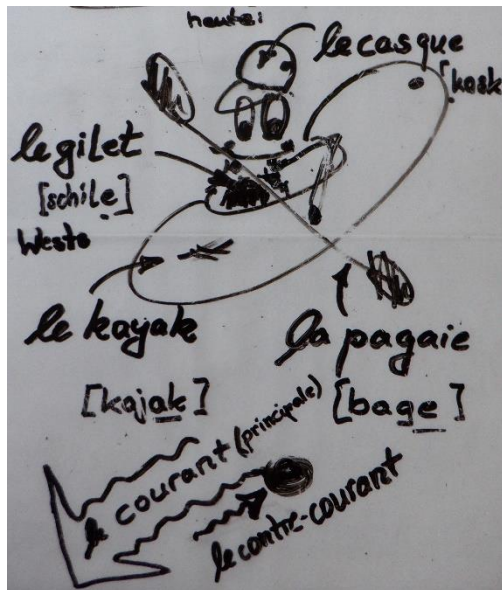 le casque
[kask]
le gilet
[schile]
Weste
le kayak
[kajak]
la pagaie
[bage]
le courant (principale)
le contre-courant